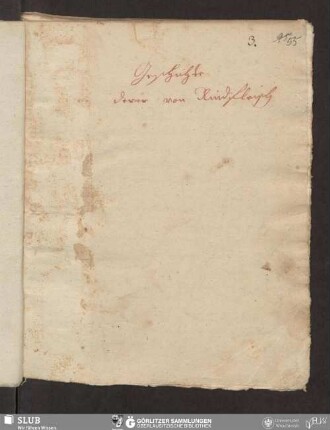 3.
Geschichte
derer von Rindfleisch
SLUB
Wir führen Wissen.
GÖRLITZER SAMMLUNGEN
OBERLAUSITZISCHE BIBLIOTHEK